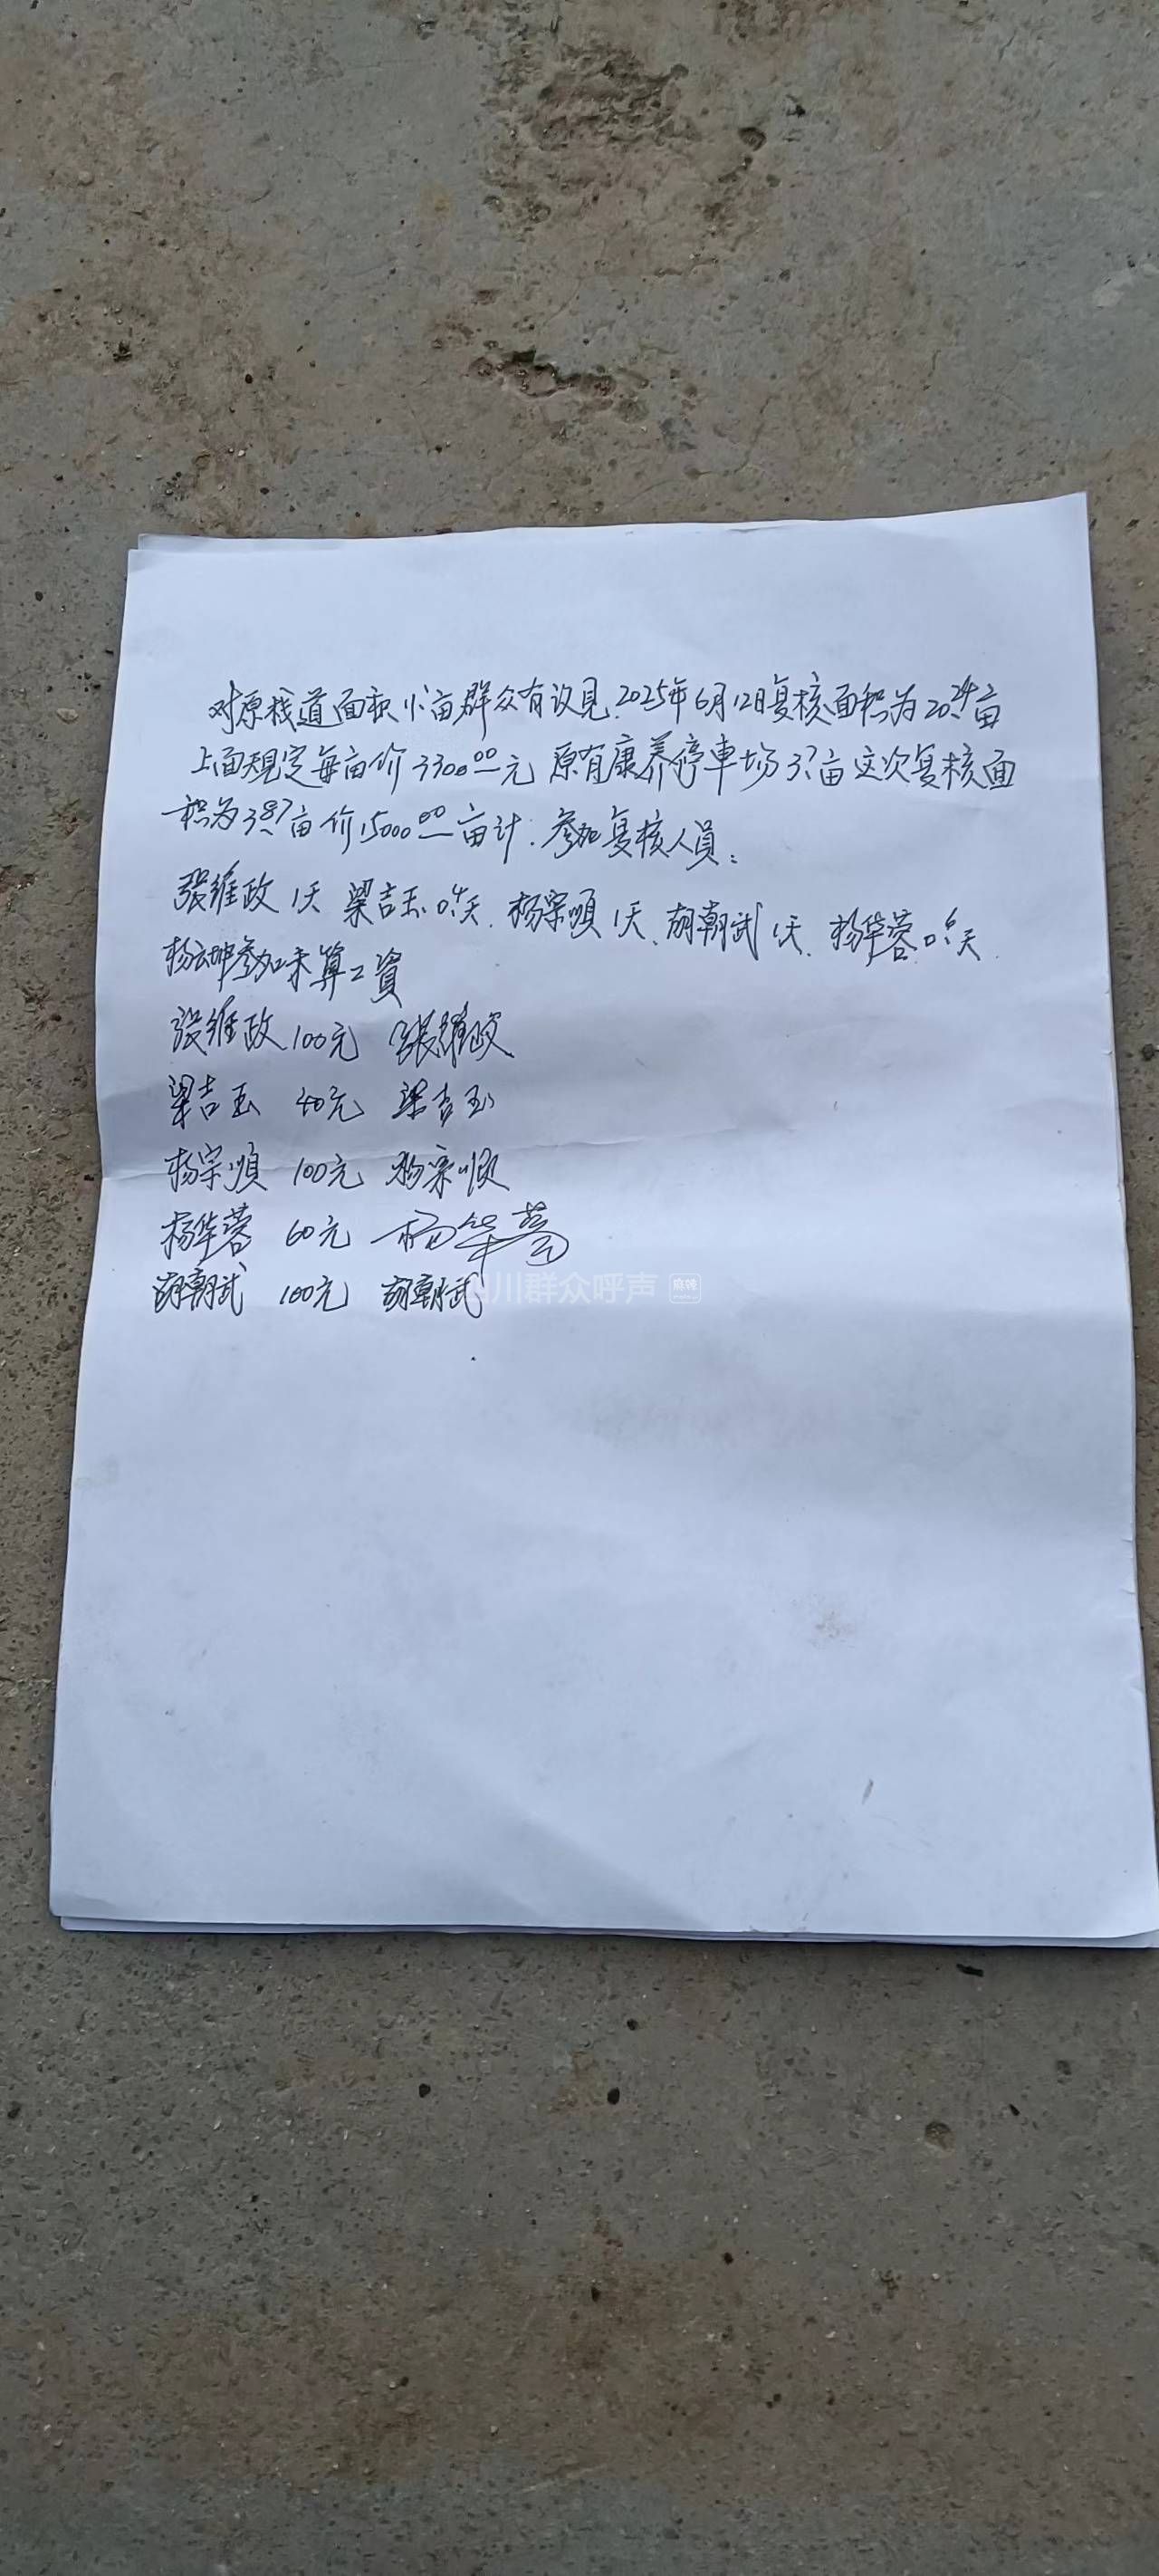 对原栈道面积小亩群众有议见.2025年6月12日复核面积为20.24亩
上面规定每亩价3300.00元 原有康养停車场3.?亩这次复核面
积为3.87亩价15000.00亩计.参加复核人员:
張维政1天 梁吉玉0.4天.杨宗順1天、胡朝武1天.杨华蓉0.6天.
杨云坤参加未算工資
張维政 100元 張维政
梁吉玉 40元 梁吉玉
杨宗順 100元 杨宗顺
杨华蓉 60元 杨华蓉
胡朝武 100元 胡朝武
川群众呼声 麻辣